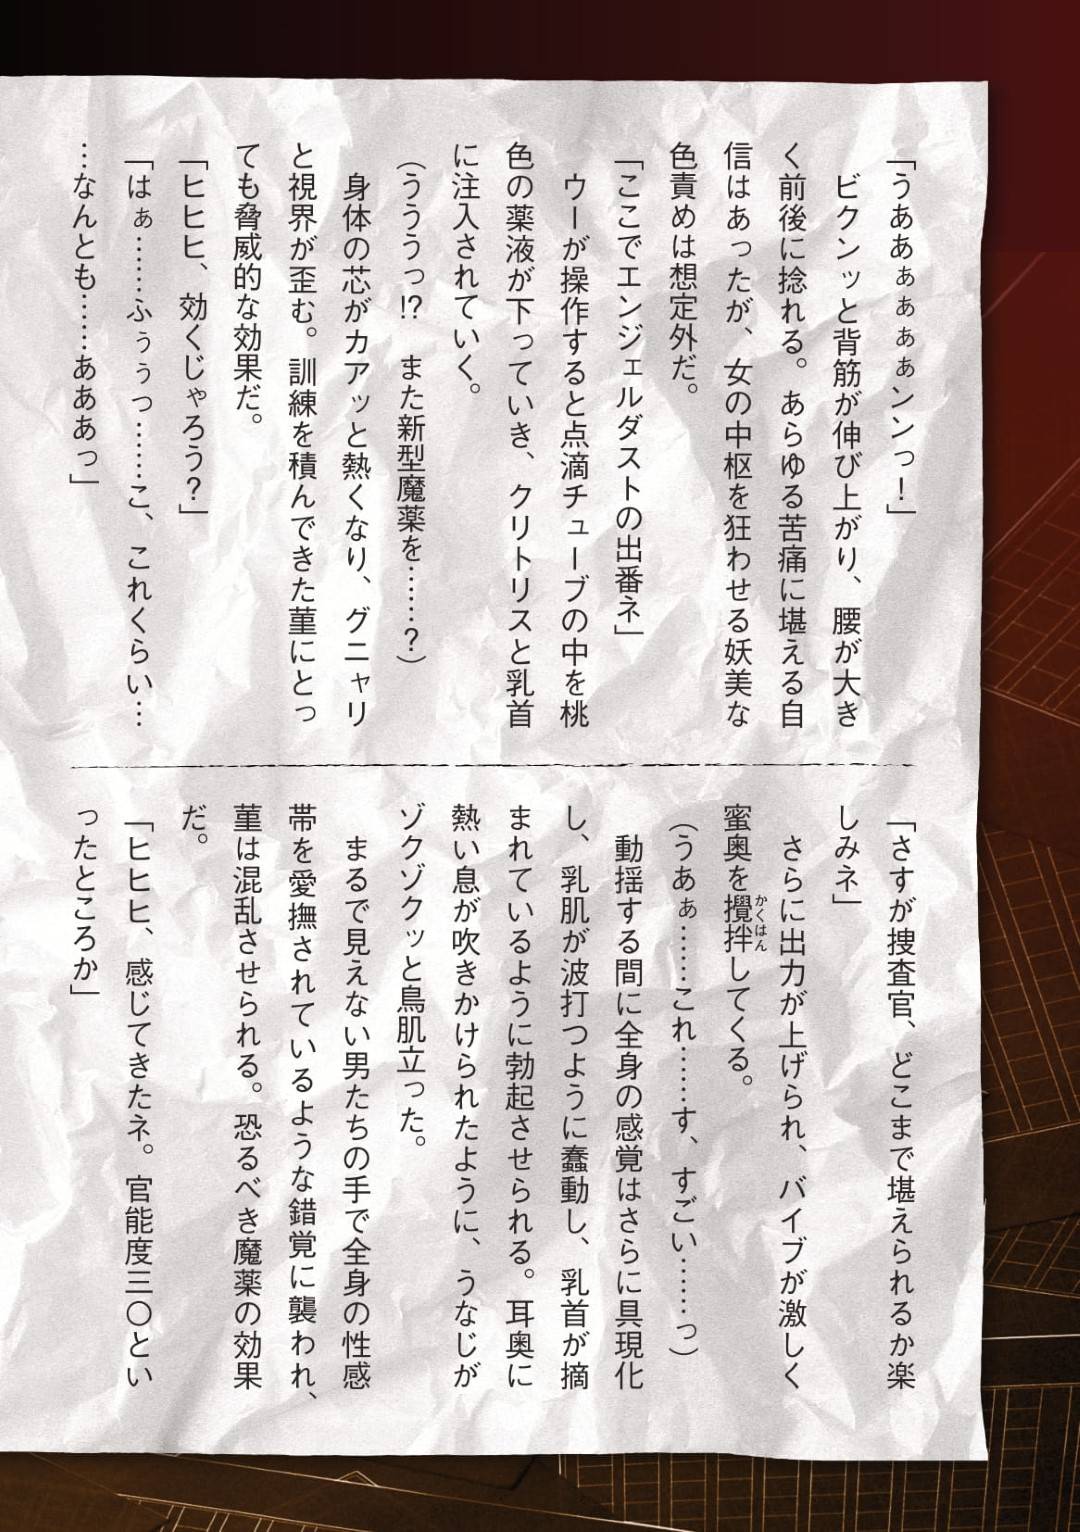 「うああぁぁぁぁンンっ！」
ビクンッと背筋が伸び上がり、腰が大き
く前後に捻れる。あらゆる苦痛に堪える自
信はあったが、女の中枢を狂わせる妖美な
色責めは想定外だ。
「ここでエンジェルダストの出番ネ」
ウーが操作すると点滴チューブの中を桃
色の薬液が下っていき、クリトリスと乳首
に注入されていく。
（うううっ!?　また新型魔薬を……？）
身体の芯がカアッと熱くなり、グニャリ
と視界が歪む。訓練を積んできた菫にとっ
ても脅威的な効果だ。
「ヒヒヒ、効くじゃろう？」
「はぁ……ふぅぅっ……こ、これくらい…
…なんとも……あああっ」
「さすが捜査官、どこまで堪えられるか楽
しみネ」
さらに出力が上げられ、バイブが激しく
蜜奥を攪拌かくはんしてくる。
（うあぁ……これ……す、すごい……っ）
動揺する間に全身の感覚はさらに具現化
し、乳肌が波打つように蠢動し、乳首が摘
まれているように勃起させられる。耳奥に
熱い息が吹きかけられたように、うなじが
ゾクゾクッと鳥肌立った。
まるで見えない男たちの手で全身の性感
帯を愛撫されているような錯覚に襲われ、
菫は混乱させられる。恐るべき魔薬の効果
だ。
「ヒヒヒ、感じてきたネ。官能度三〇とい
ったところか」